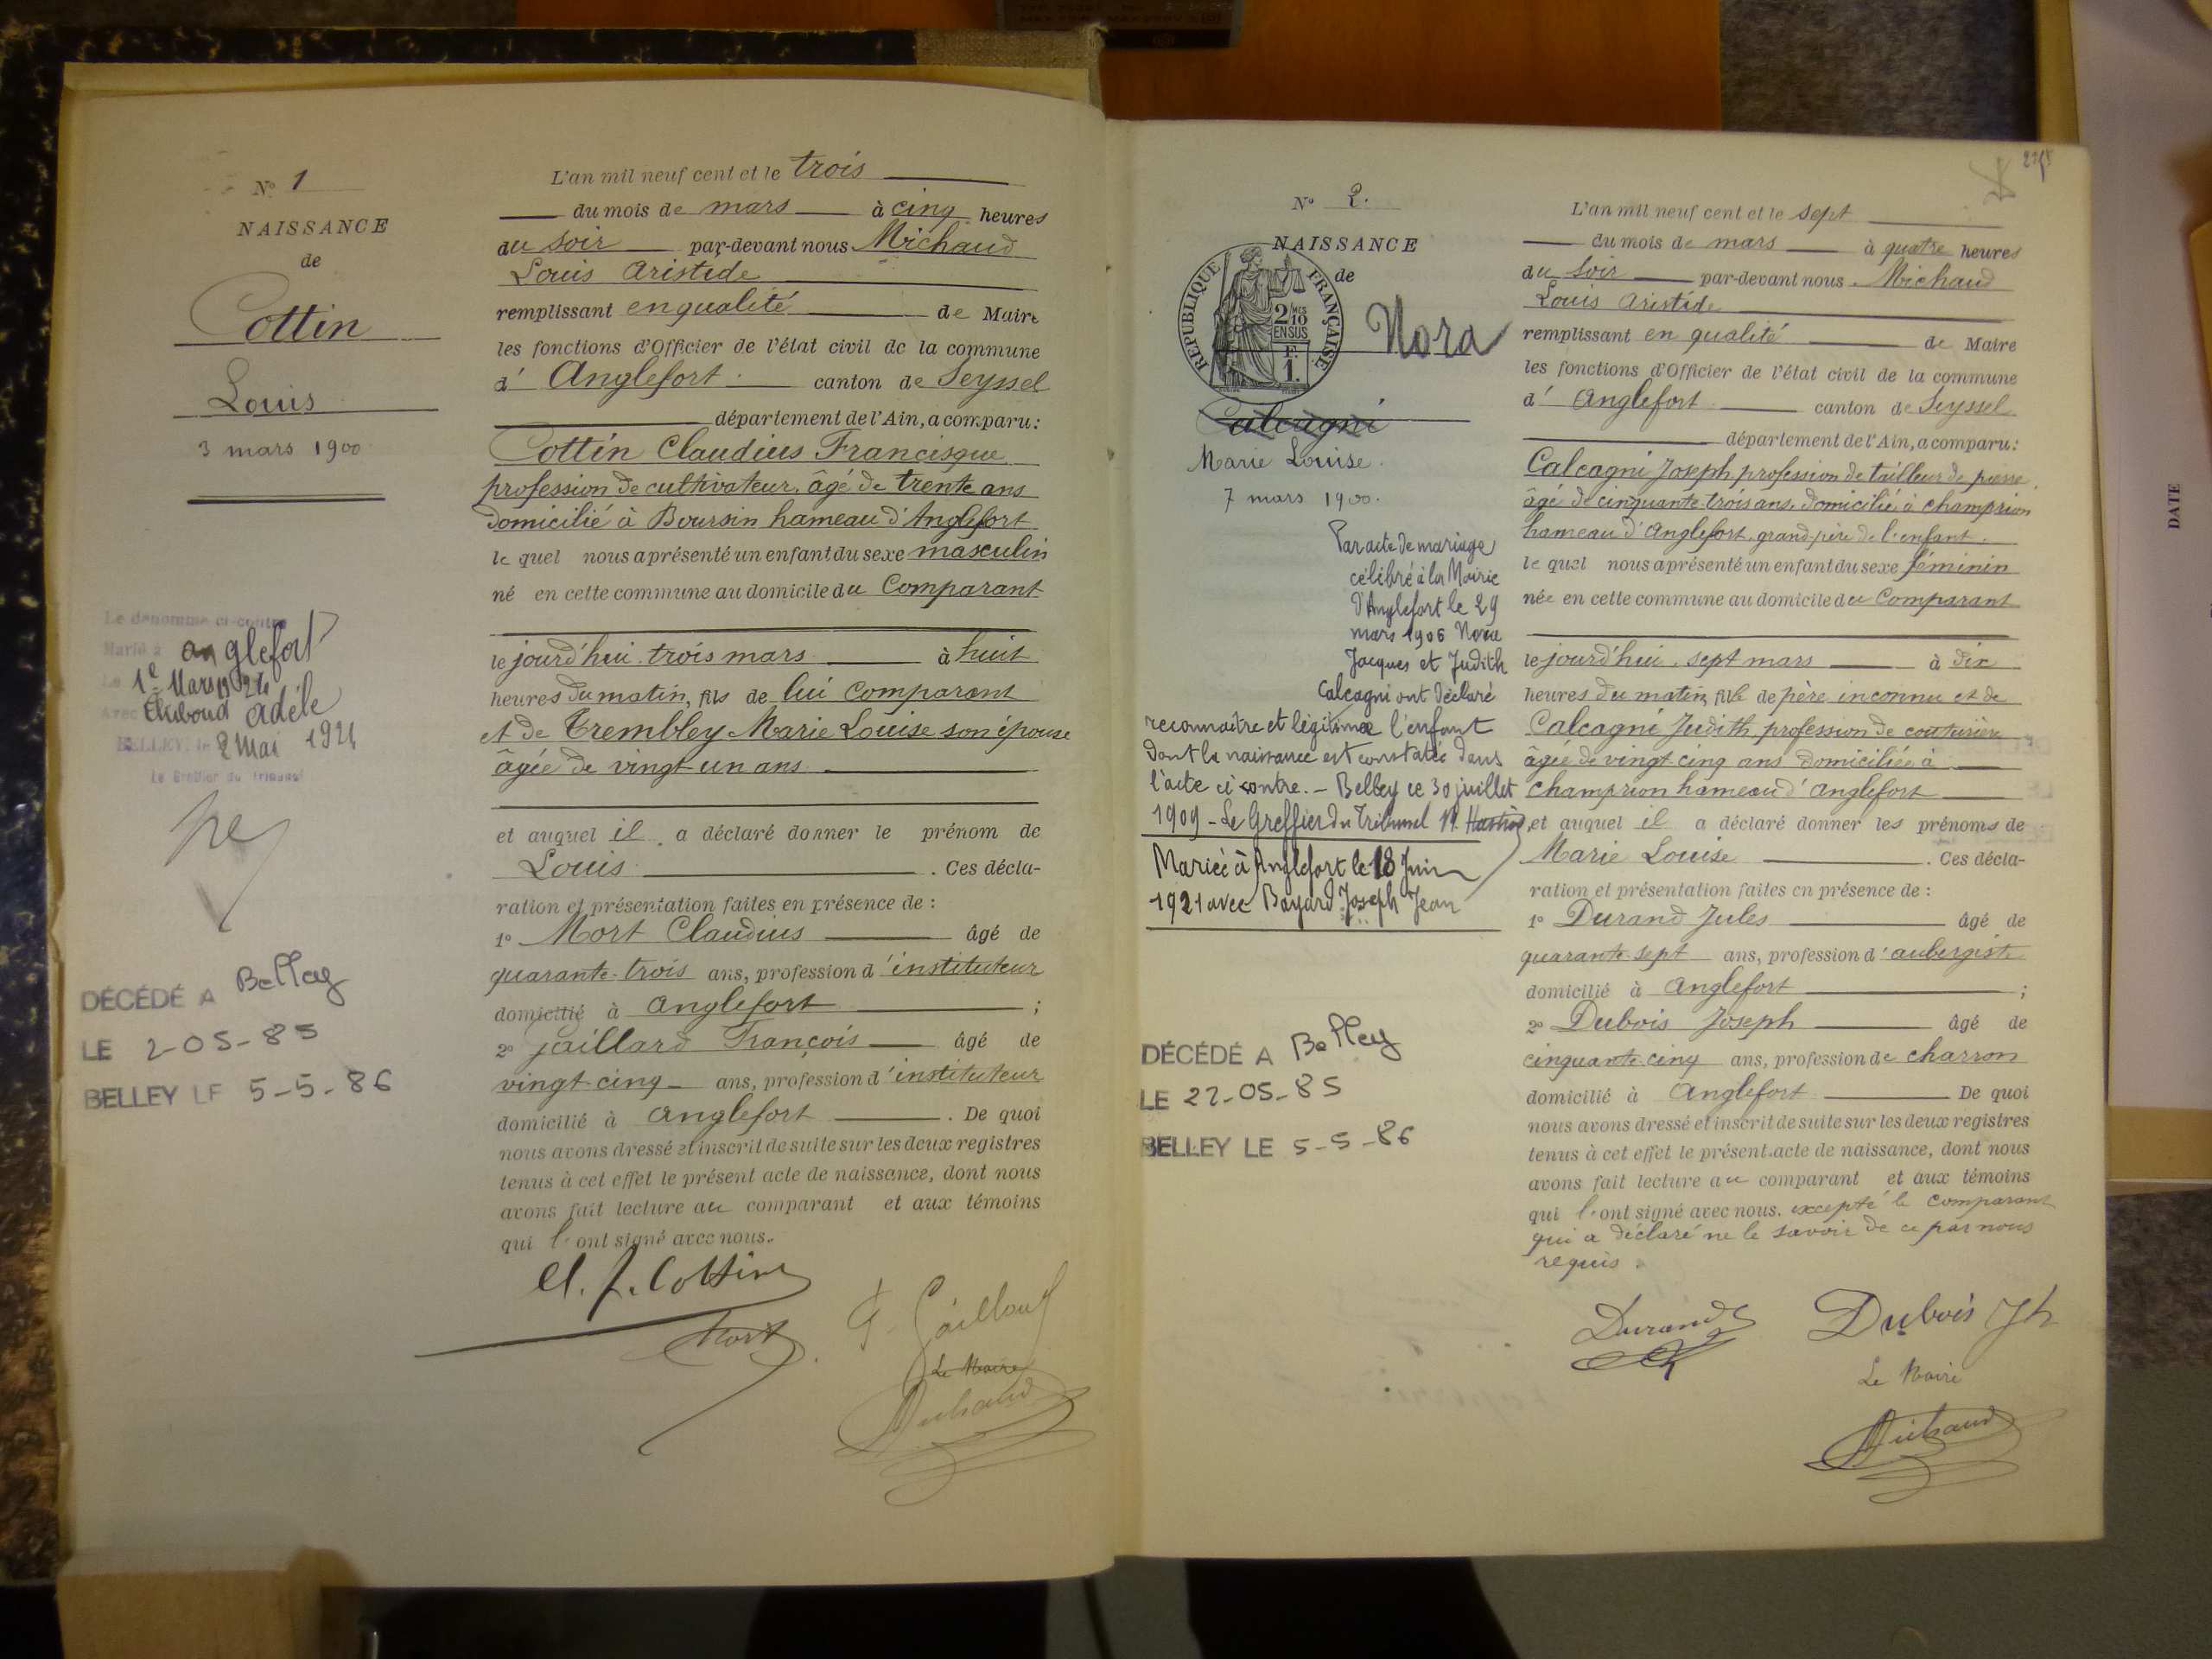 N° 1
NAISSANCE
de
Cottin
Louis
3 mars 1900
Le dénommé ci-contre
Marié à Anglefort
Le 1e Mars 1924
avec Adèle
BELLEY, le 2 Mai 1924
Le Greffier du Tribunal
DÉCÉDÉ A Belley
LE 2-05-85
BELLEY LE 5-5-86
L'an mil neuf cent et le trois
du mois de mars à cinq heures
du soir par-devant nous Michaud
Louis Aristide
remplissant en qualité de Maire
les fonctions d'Officier de l'état civil de la commune
d' Anglefort canton de Seyssel
département de l'Ain, a comparu:
Cottin Claudius Francisque
profession de cultivateur, âgé de trente ans
domicilié à Boursin hameau d'Anglefort
le quel nous a présenté un enfant du sexe masculin
né en cette commune au domicile du Comparant
le jourd'hui trois mars à huit
heures du matin, fils de lui comparant
et de Trembley Marie Louise son épouse
âgée de vingt-un ans
et auquel il a déclaré donner le prénom de
Louis . Ces décla-
ration et présentation faites en présence de :
1° Mort Claudius âgé de
quarante-trois ans, profession d'instituteur
domicilié à Anglefort ;
2° Jaillard François âgé de
vingt-cinq ans, profession d'instituteur
domicilié à Anglefort . De quoi
nous avons dressé et inscrit de suite sur les deux registres
tenus à cet effet le présent acte de naissance, dont nous
avons fait lecture au comparant et aux témoins
qui l'ont signé avec nous.
Cl. F. Cottin
Mort
F. Jaillard
Le Maire
Michaud
N° 2.
NAISSANCE
de
REPUBLIQUE FRANÇAISE
2/10MES
EN SUS
F.
1.
Nora
Calcagni
Marie Louise.
7 mars 1900.
Par acte de mariage
célébré à la Mairie
d'Anglefort le 29
mars 1906 Nora
Jacques et Judith
Calcagni ont déclaré
reconnaître et légitimer l'enfant
dont la naissance est constatée dans
l'acte ci contre. - Belley ce 30 juillet
1909 - Le Greffier du Tribunal
Mariée à Anglefort le 18 Juin
1921 avec Bayard Joseph Jean
DÉCÉDÉ A Belley
LE 22-05-85
BELLEY LE 5-5-86
L'an mil neuf cent et le sept
du mois de mars à quatre heures
du soir par-devant nous Michaud
Louis Aristide
remplissant en qualité de Maire
les fonctions d'Officier de l'état civil de la commune
d' Anglefort canton de Seyssel
département de l'Ain, a comparu:
Calcagni Joseph, profession de tailleur de pierre
âgé de cinquante-trois ans, domicilié à Champrion
hameau d'Anglefort, grand-père de l'enfant.
le quel nous a présenté un enfant du sexe féminin
née en cette commune au domicile du Comparant
le jourd'hui sept mars à dix
heures du matin, fille de père inconnu et de
Calcagni Judith, profession de couturière
âgée de vingt-cinq ans domiciliée à
Champrion hameau d'Anglefort
et auquel il a déclaré donner les prénoms de
Marie Louise . Ces décla-
ration et présentation faites en présence de :
1° Durand Jules âgé de
quarante-sept ans, profession d'aubergiste
domicilié à Anglefort ;
2° Dubois Joseph âgé de
cinquante-cinq ans, profession de charron
domicilié à Anglefort De quoi
nous avons dressé et inscrit de suite sur les deux registres
tenus à cet effet le présent acte de naissance, dont nous
avons fait lecture au comparant et aux témoins
qui l'ont signé avec nous. excepté le comparant
qui a déclaré ne le savoir de ce par nous
requis.
Durand
Dubois Jh
Le Maire
Michaud
DATE